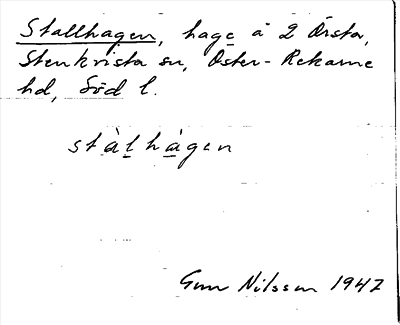 Stallhagen, hage å 2 Årsta,
Stenkvista sn, Öster-Rekarne
hd, Söd l.
stàlhàgen
Gun Nilsson 1947